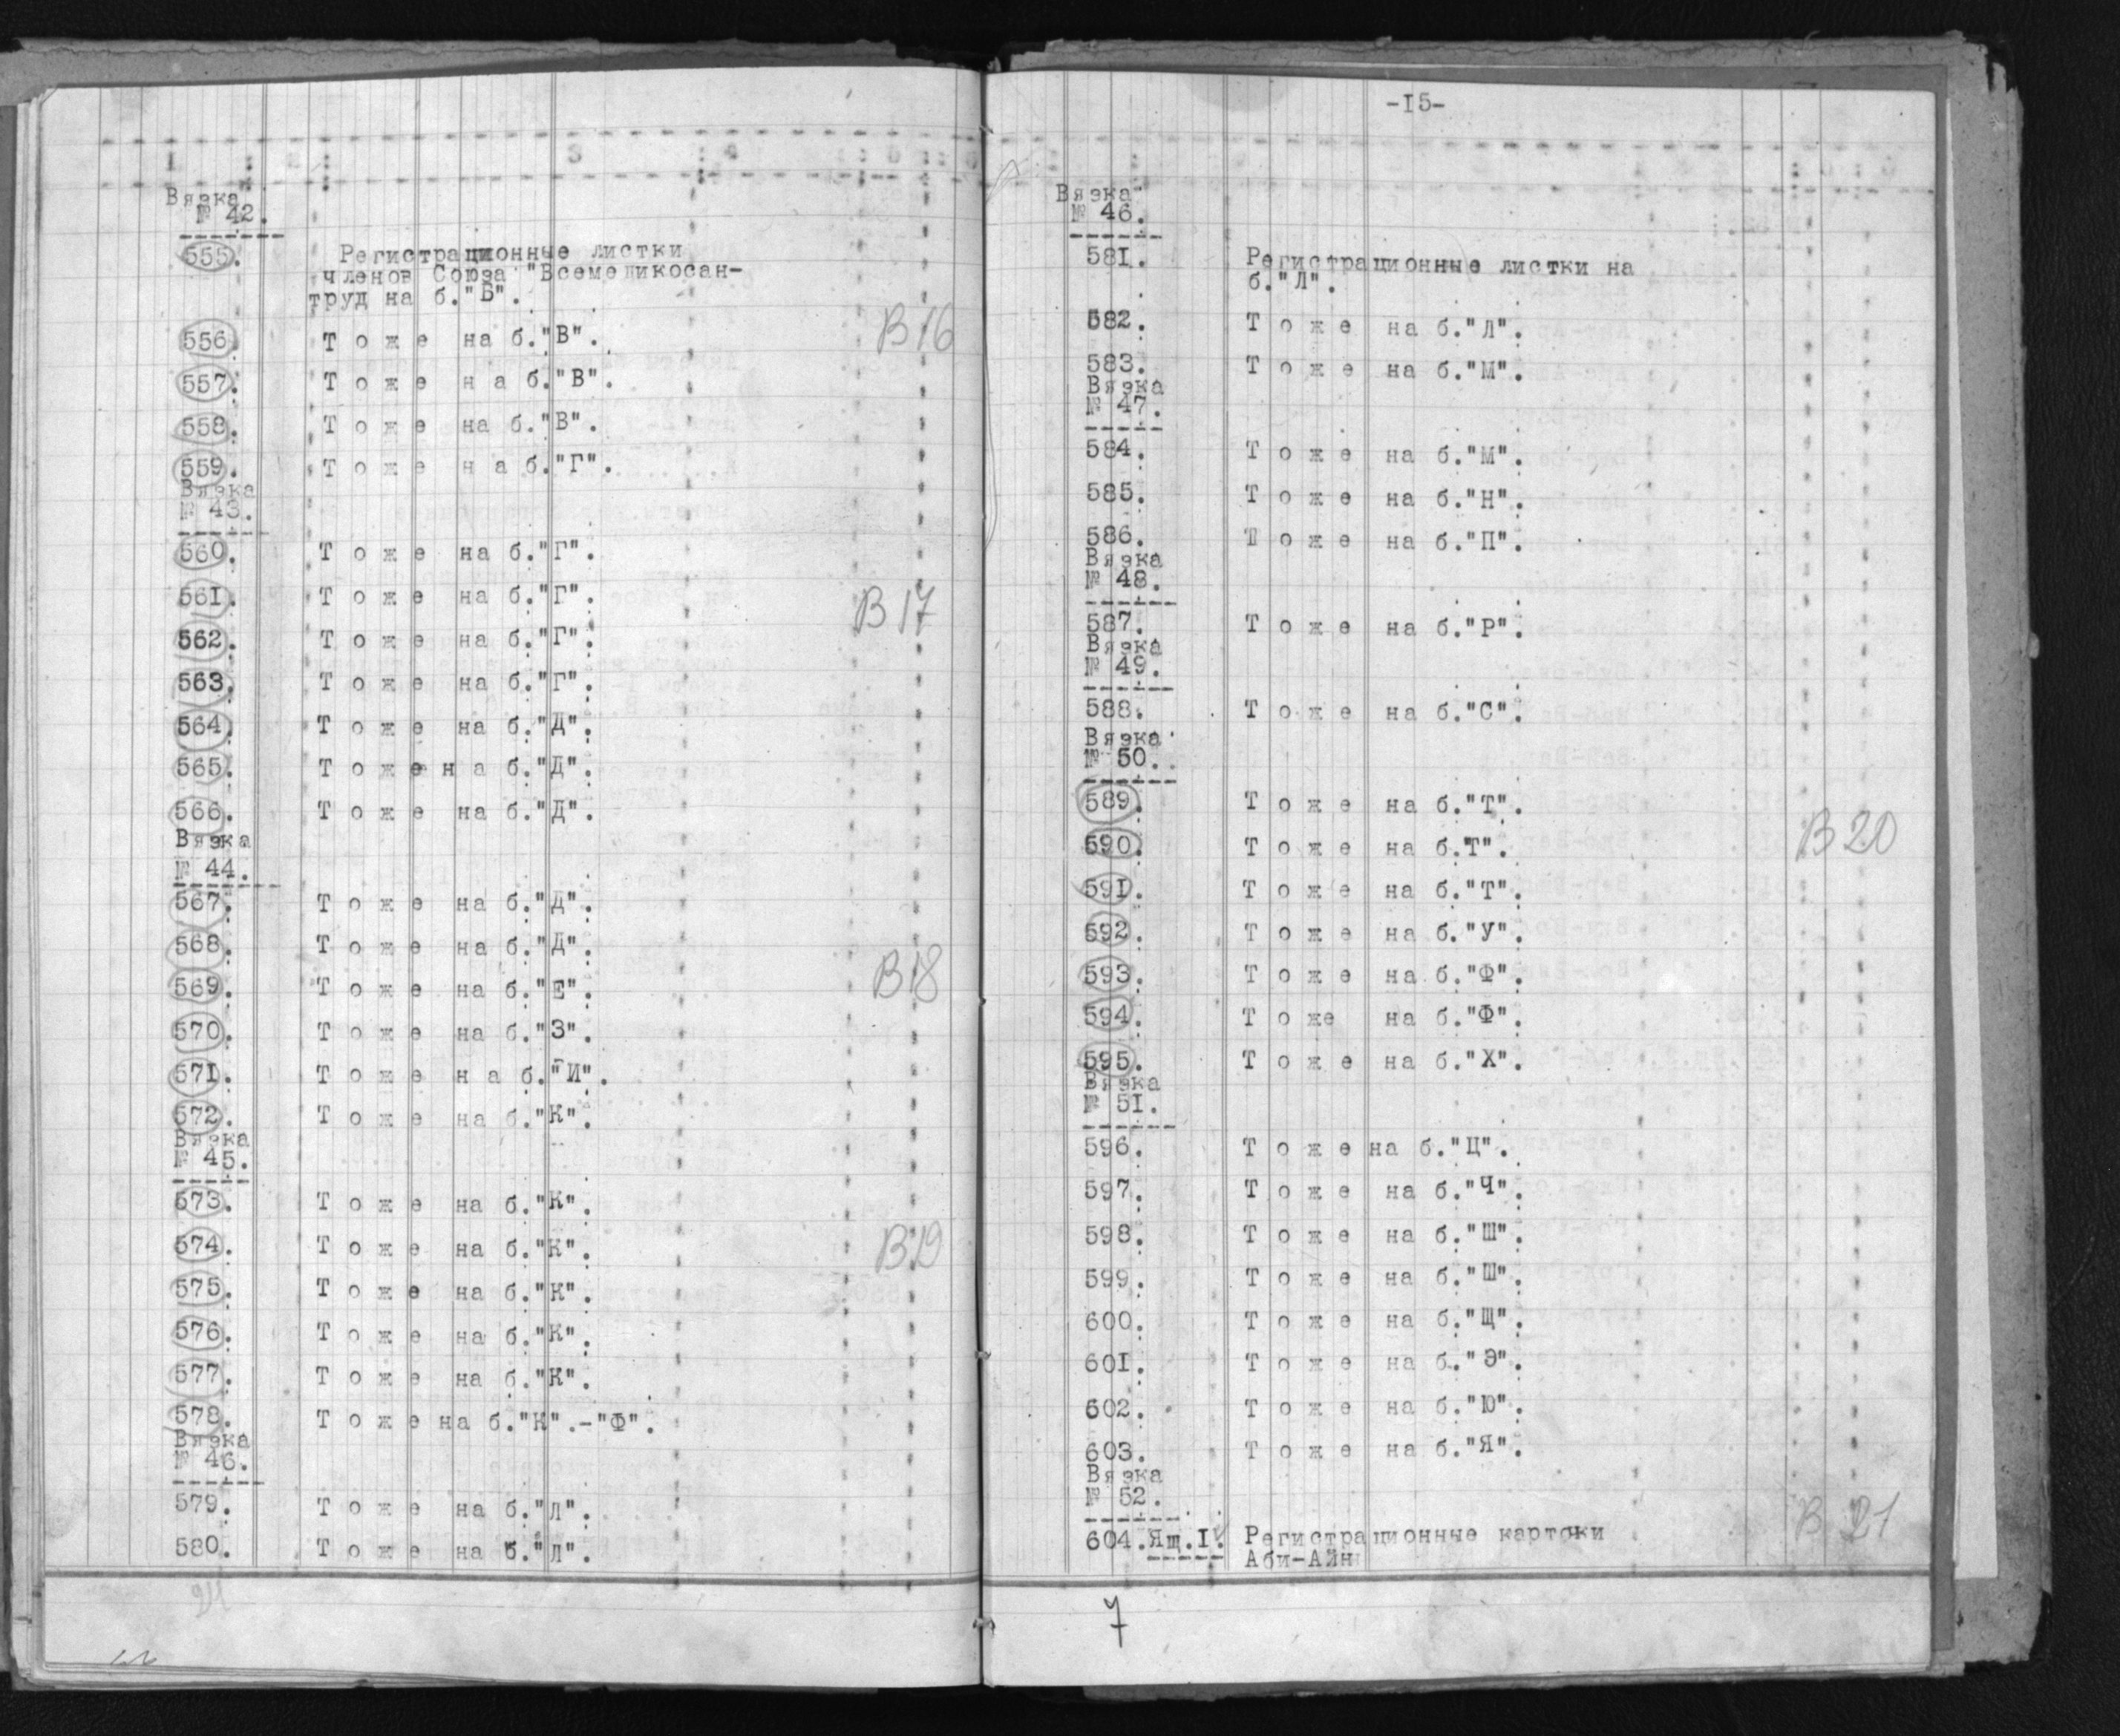 1 2 3 4 5 6
Вязка
№ 42.
555. Регистрационные листки
членов Союза "Всемедикосан-
труд на б."Б".
556. Т о ж е на б."В". В 16
557. Т о ж е н а б."В".
558. Т о ж е на б."В".
559. Т о ж е н а б."Г".
Вязка
№ 43.
560. Т о ж е на б."Г".
561. Т о ж е на б."Г". В 17
562. Т о ж е на б."Г".
563. Т о ж е на б."Г".
564. Т о ж е на б."Д".
565. Т о ж е н а б."Д".
566. Т о ж е на б."Д".
Вязка
№ 44.
567. Т о ж е на б."Д".
568. Т о ж е на б."Д".
569. Т о ж е на б."Е". В 18
570. Т о ж е на б."З".
571. Т о ж е н а б."И".
572. Т о ж е на б."К".
Вязка
№ 45.
573. Т о ж е на б."К".
574. Т о ж е на б."К". В 19
575. Т о ж е на б."К".
576. Т о ж е на б."К".
577. Т о ж е на б."К".
578. Т о ж е на б."К".-"Ф".
Вязка
№ 46.
579. Т о ж е на б."Л".
580. Т о ж е на б."Л".
-15-
Вязка
№ 46.
581. Регистрационные листки на
б."Л".
582. Т о ж е на б."Л".
583. Т о ж е на б."М".
Вязка
№ 47.
584. Т о ж е на б."М".
585. Т о ж е на б."Н".
586. Т о ж е на б."П".
Вязка
№ 48.
587. Т о ж е на б."Р".
Вязка
№ 49.
588. Т о ж е на б."С".
Вязка
№ 50.
589. Т о ж е на б."Т".
590. Т о ж е на б."Т". В 20
591. Т о ж е на б."Т".
592. Т о ж е на б."У".
593. Т о ж е на б."Ф".
594. Т о же на б."Ф".
595. Т о ж е на б."Х".
Вязка
№ 51.
596. Т о ж е на б."Ц".
597. Т о ж е на б."Ч".
598. Т о ж е на б."Ш".
599. Т о ж е на б."Ш".
600. Т о ж е на б."Щ".
601. Т о ж е на б."Э".
602. Т о ж е на б."Ю".
603. Т о ж е на б."Я".
Вязка
№ 52.
604. Ящ.I. Регистрационные карточки В 21
Аби-Айн
7